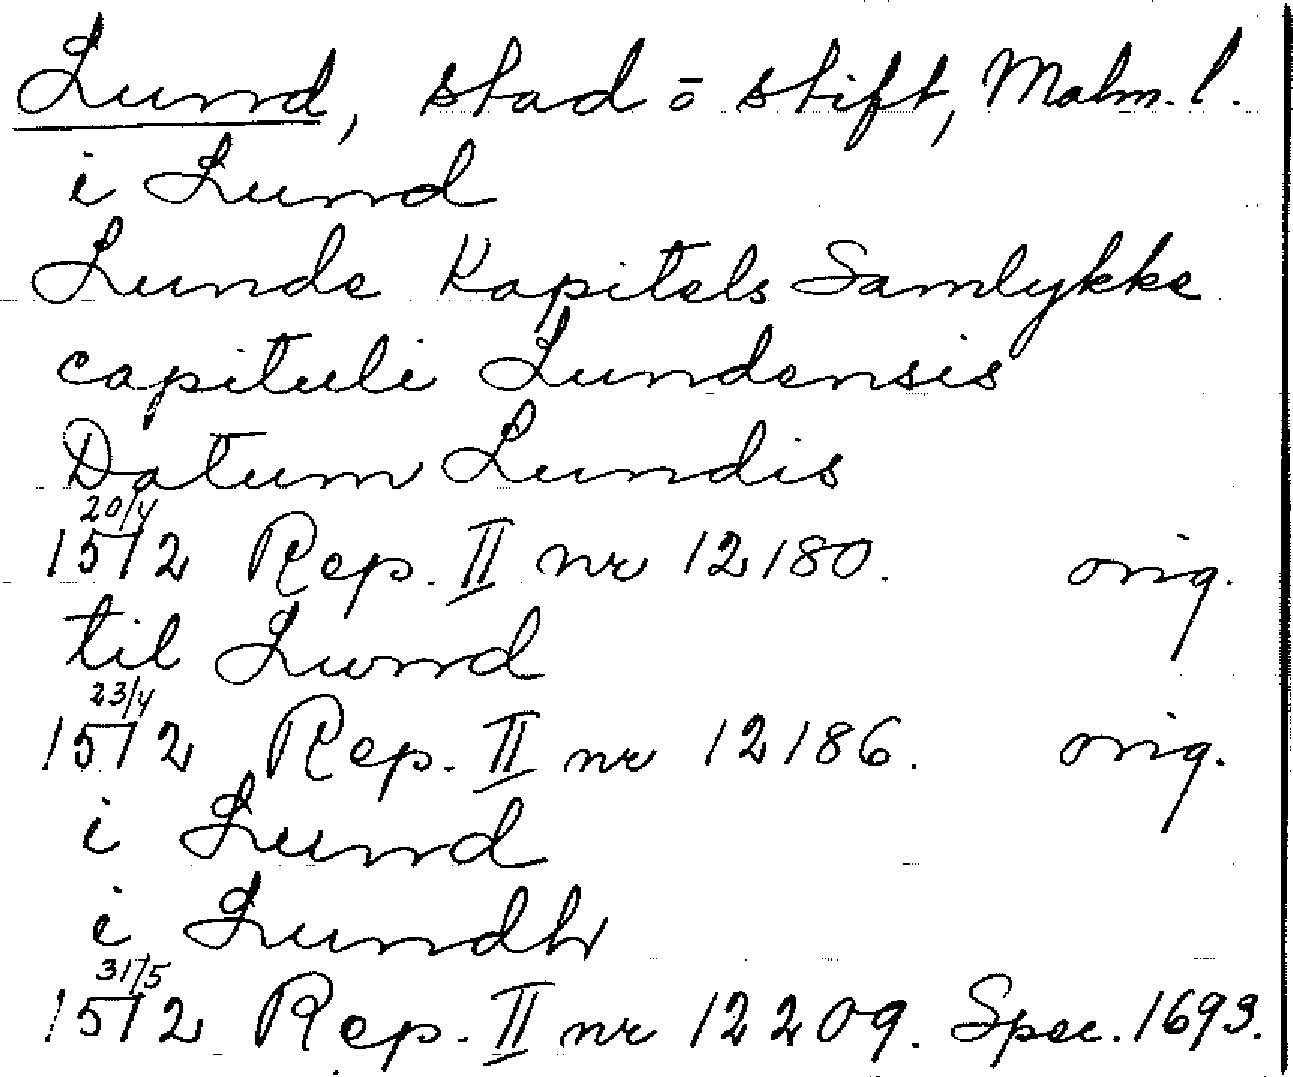 Lund, stad o stift, Malm. l.
i Lund
Lunde Kapitels Samlykke
capituli Lundensis
Datum Lundis
20/4
1512 Rep. II nr 12180. orig.
til Lwnd
23/4
1512 Rep. II nr 12186. orig.
i Lund
i Lundh
31/5
1512 Rep. II nr 12209. Spec. 1693.